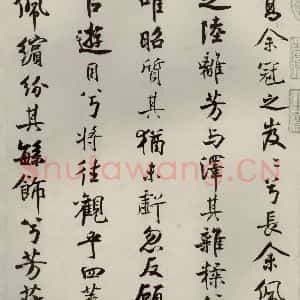 高余冠之岌〻兮長余佩
之陸離芳与澤其雜糅
唯昭質其猶未虧忽反顧
㠯遊目兮將往觀乎四荒
佩繽紛其繁飾兮芳菲
Shufawang.CN